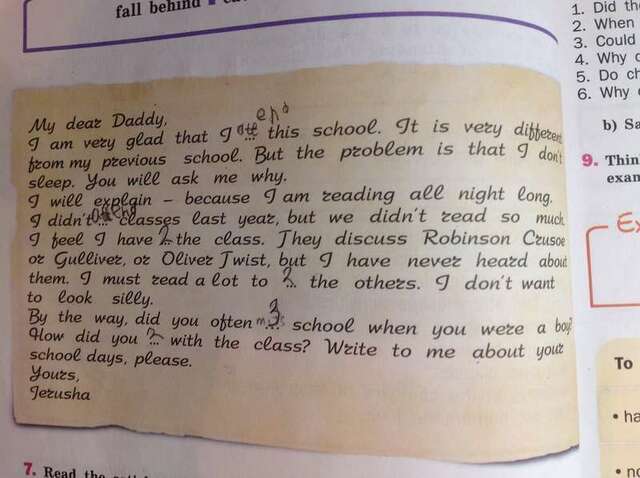 fall behind
1. Did the
2. When
3. Could
4. Why
5. Do
6. Why
b) Sa
9. Thin
exam
My dear Daddy,
I am very glad that I att end this school. It is very different
from my previous school. But the problem is that I don't
sleep. You will ask me why.
I will explain – because I am reading all night long.
I didn't classes last year, but we didn't read so much.
I feel I have 2 the class. They discuss Robinson Crusoe
or Gulliver, or Oliver Twist, but I have never heard about
them. I must read a lot to 2 the others. I don't want
to look silly.
By the way, did you often 3 school when you were a boy?
How did you 2 with the class? Write to me about your
school days, please.
Yours,
Jerusha
Ex
To
• ha
• no
7. Read the